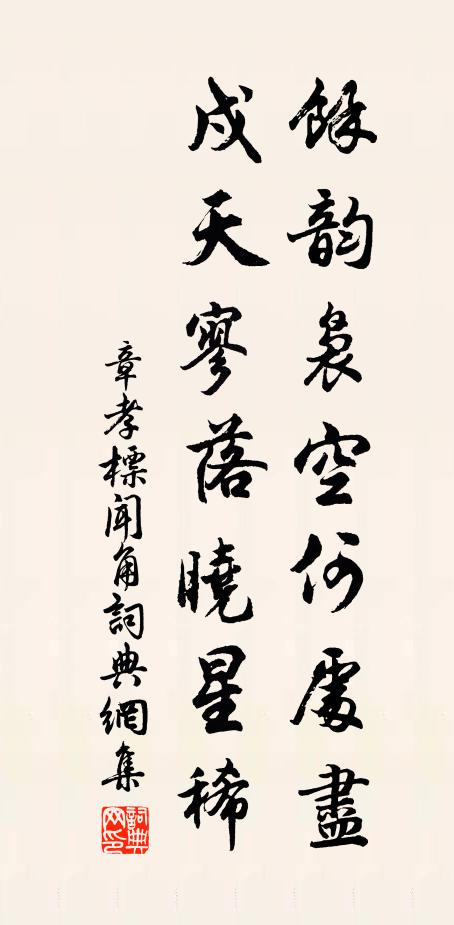 餘韵裊空何處盡
戍天寥落曉星稀
章孝標聞角詞典網集
詞典网印